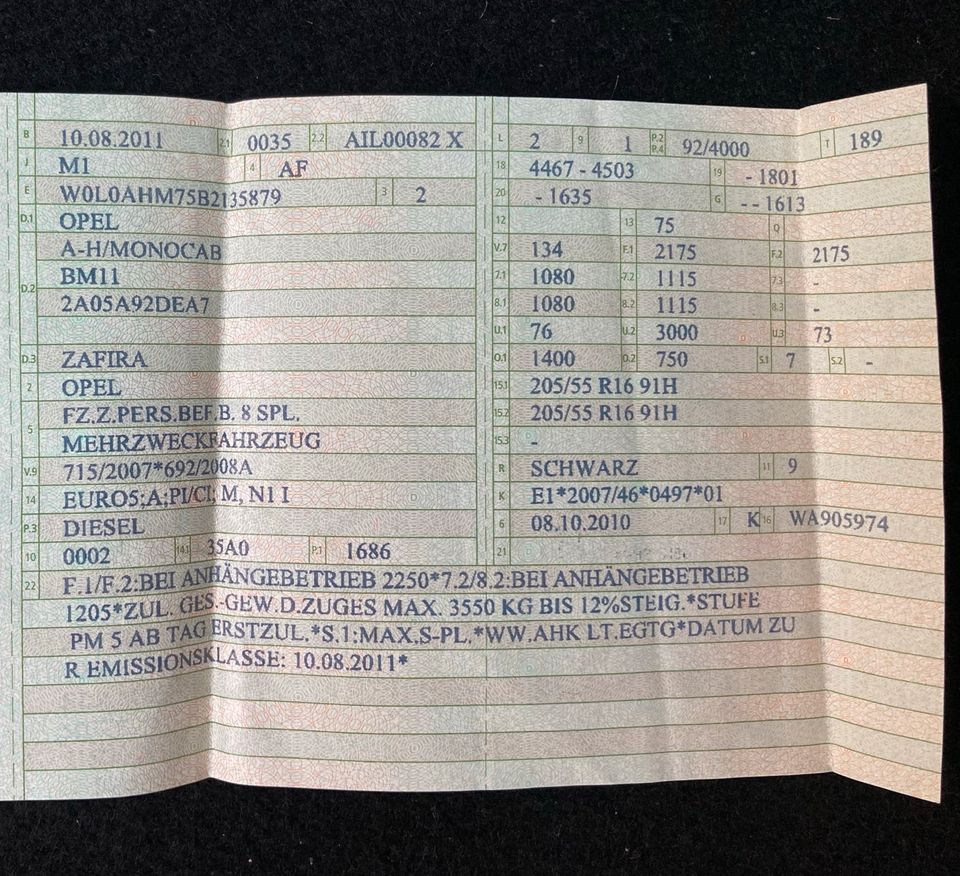 B 10.08.2011 2.1 0035 2.2 AIL00082 X
J M1 4 AF
E W0L0AHM75B2135879 3 2
D.1 OPEL
A-H/MONOCAB
D.2 BM11
2A05A92DEA7
D.3 ZAFIRA
2 OPEL
5 FZ.Z.PERS.BEF.B. 8 SPL.
MEHRZWECKFAHRZEUG
V.9 715/2007*692/2008A
14 EURO5;A;PI/CI; M, N1 I
P.3 DIESEL
10 0002 14.1 35A0 P.1 1686
L 2 9 1 P.2 P.4 92/4000 T 189
18 4467 - 4503 19 - 1801
20 - 1635 G - - 1613
12 13 75 Q
V.7 134 F.1 2175 F.2 2175
7.1 1080 7.2 1115 7.3 -
8.1 1080 8.2 1115 8.3 -
U.1 76 U.2 3000 U.3 73
O.1 1400 O.2 750 S.1 7 S.2 -
15.1 205/55 R16 91H
15.2 205/55 R16 91H
15.3 -
R SCHWARZ 11 9
K E1*2007/46*0497*01
6 08.10.2010 17 K 16 WA905974
21
22 F.1/F.2:BEI ANHÄNGEBETRIEB 2250*7.2/8.2:BEI ANHÄNGEBETRIEB
1205*ZUL. GES.-GEW.D.ZUGES MAX. 3550 KG BIS 12%STEIG.*STUFE
PM 5 AB TAG ERSTZUL.*S.1:MAX.S-PL.*WW.AHK LT.EGTG*DATUM ZU
R EMISSIONSKLASSE: 10.08.2011*